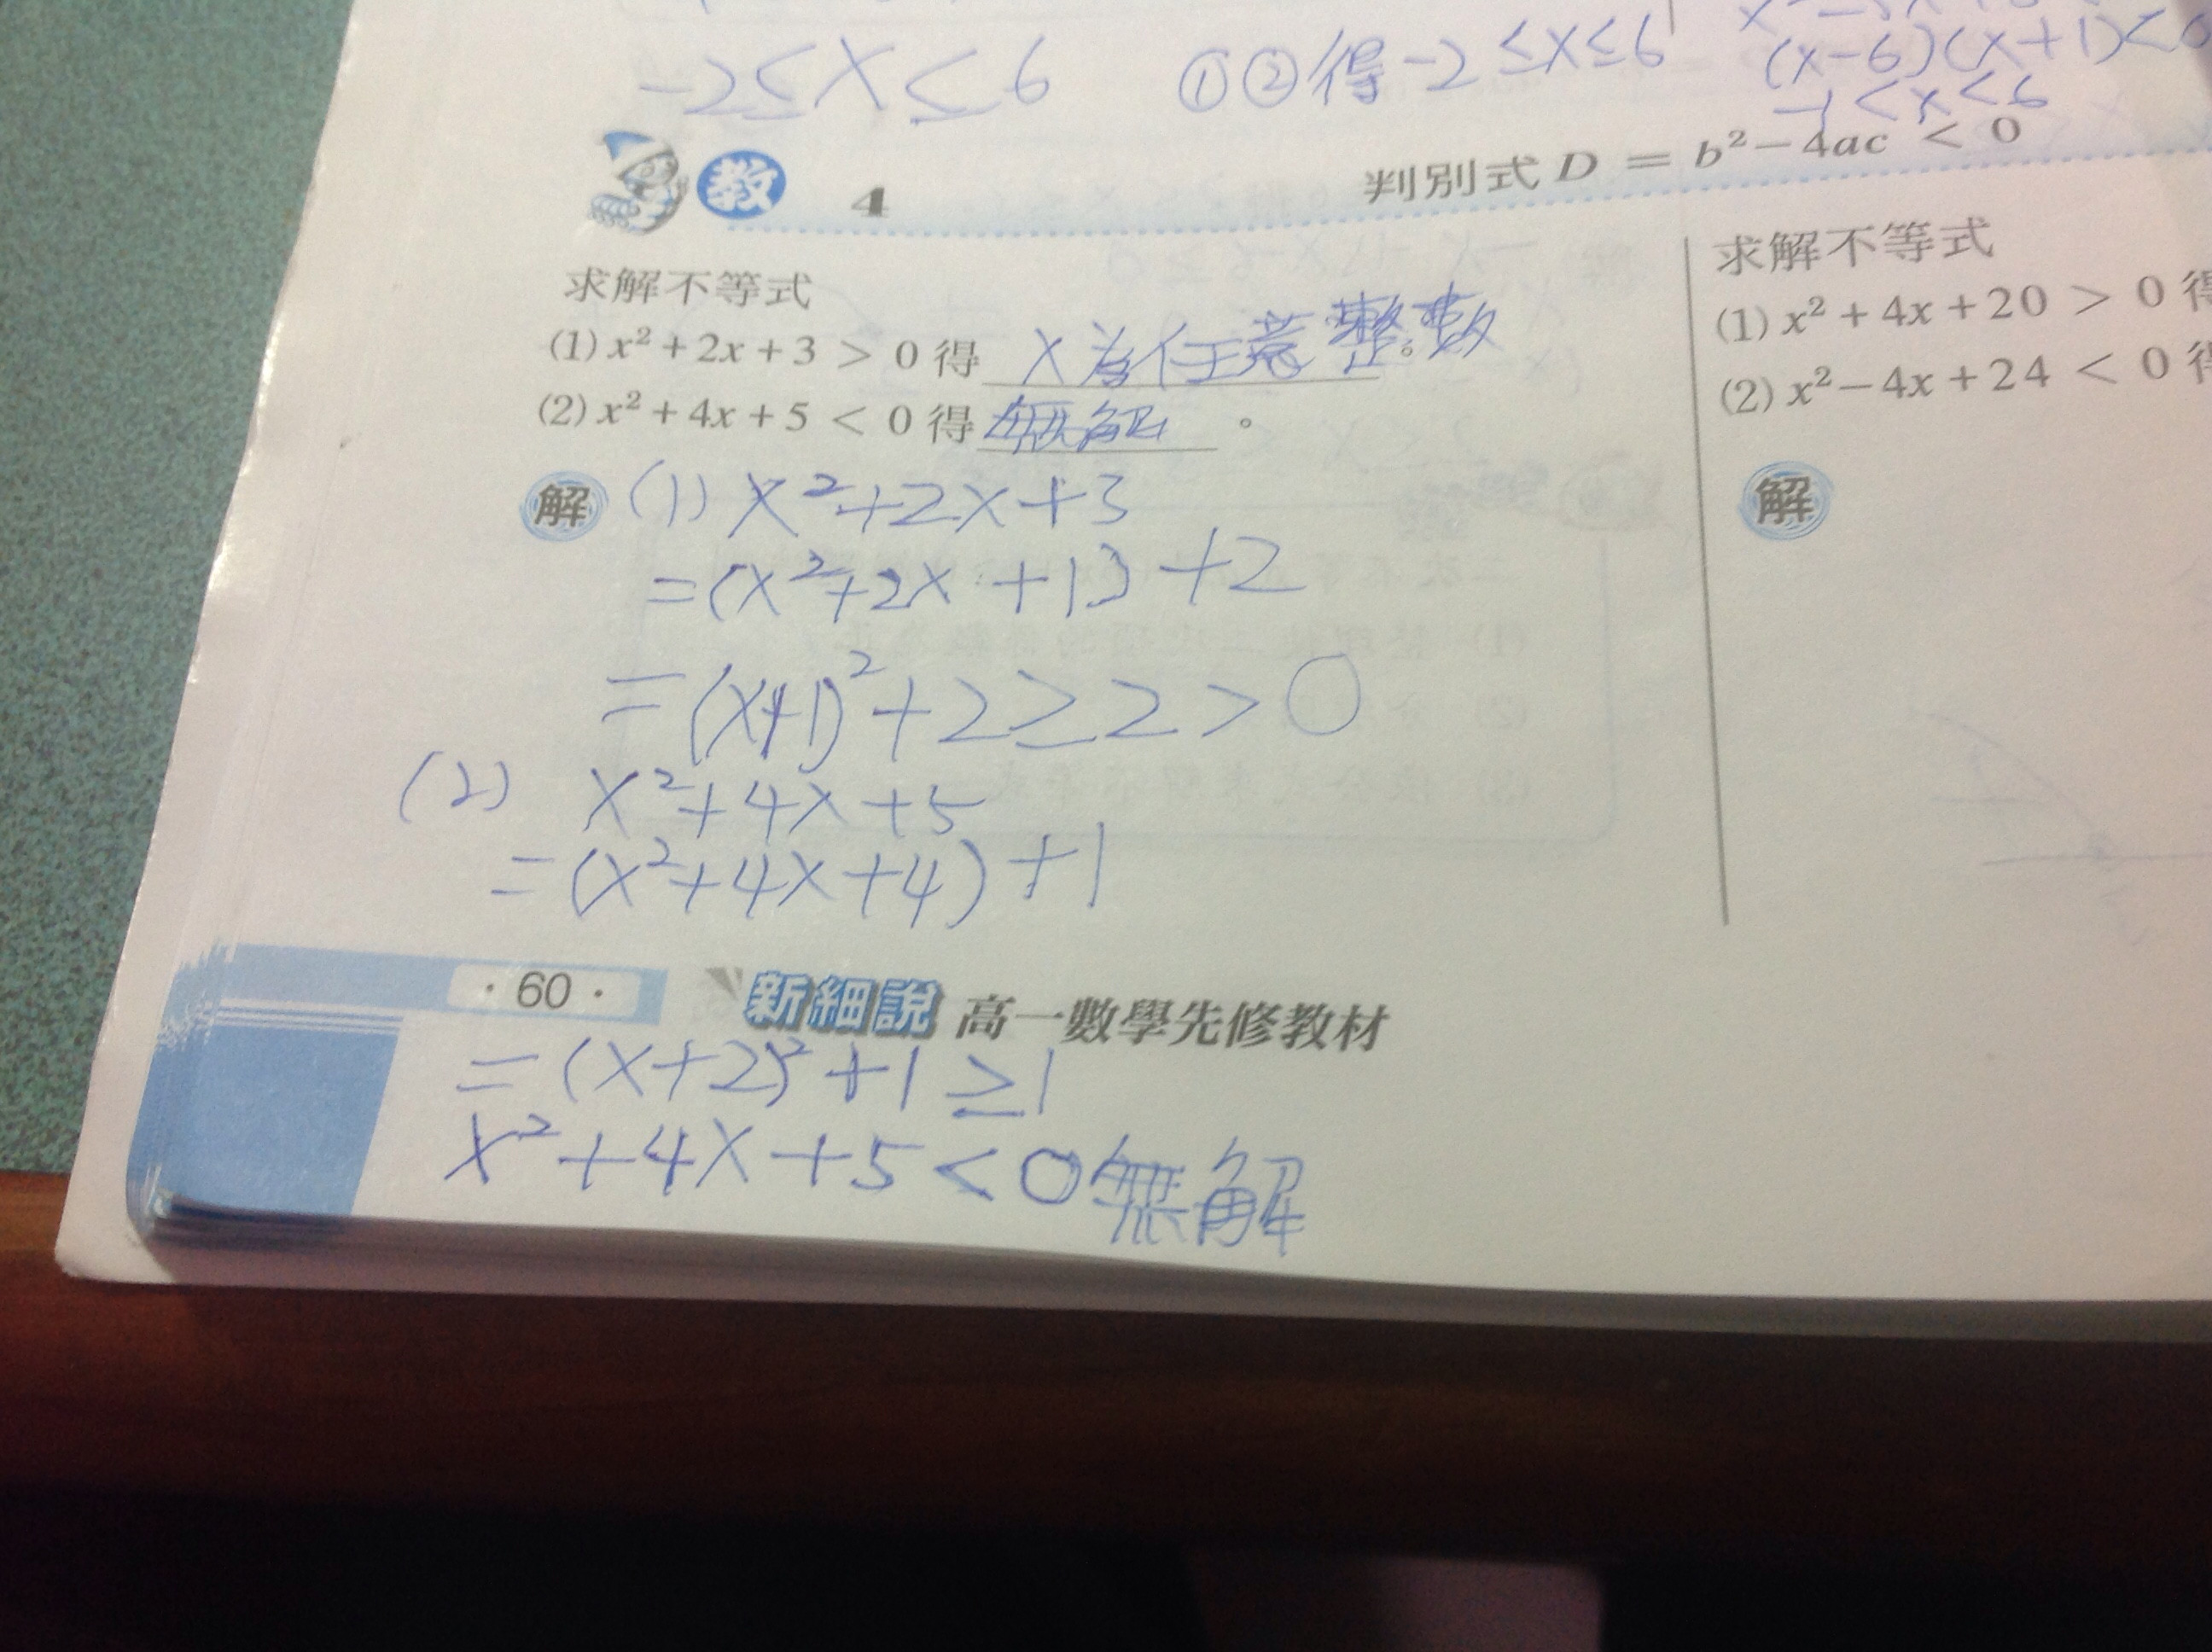 -2≤X≤6
①②得-2≤x≤6
(x-6)(x+1)<0
-1<x<6
教 4 判別式 D = b²-4ac < 0
求解不等式
(1) x²+2x+3 > 0 得 X為任意整數。
(2) x²+4x+5 < 0 得 無解 。
解 (1) X²+2X+3
=(X²+2X+1)+2
=(X+1)²+2≥2>0
(2) X²+4X+5
=(X²+4X+4)+1
·60· 新細說 高一數學先修教材
=(X+2)²+1≥1
X²+4X+5<0無解
求解不等式
(1) x²+4x+20 > 0 得
(2) x²-4x+24 < 0 得
解